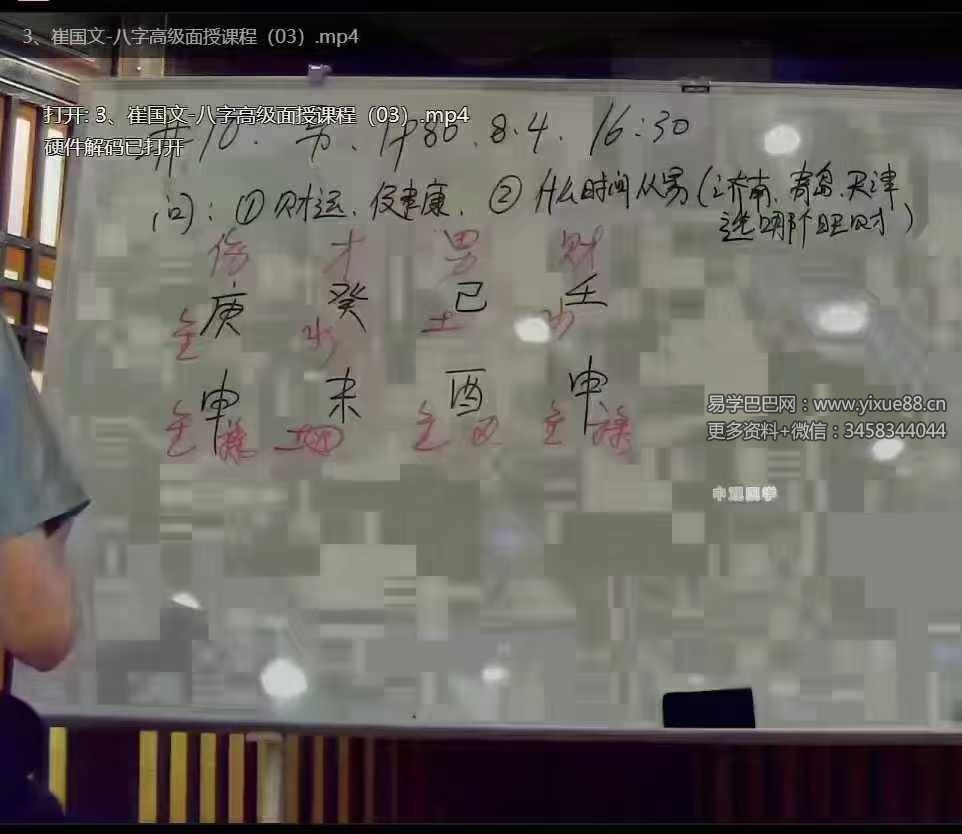 3、崔国文-八字高级面授课程（03）.mp4
打开: 3、崔国文-八字高级面授课程（03）.mp4
硬件解码已打开
#10. 男、1980.8.4. 16:30
问：①财运、健康. ②什么时间从男(济南、青岛、天津
选哪个旺财)
伤 才 男 财
庚 癸 己 壬
金 水 土 水
申 未 酉 申
金 土 金 金
易学巴巴网：www.yixue88.cn
更多资料+微信：3458344044